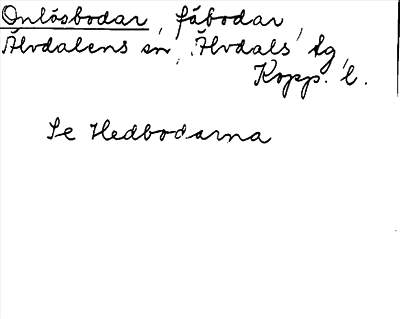 Onlösbodar, fäbodar,
Älvdalens sn, Älvdals tg,
Kopp. l.
Se Hedbodarna